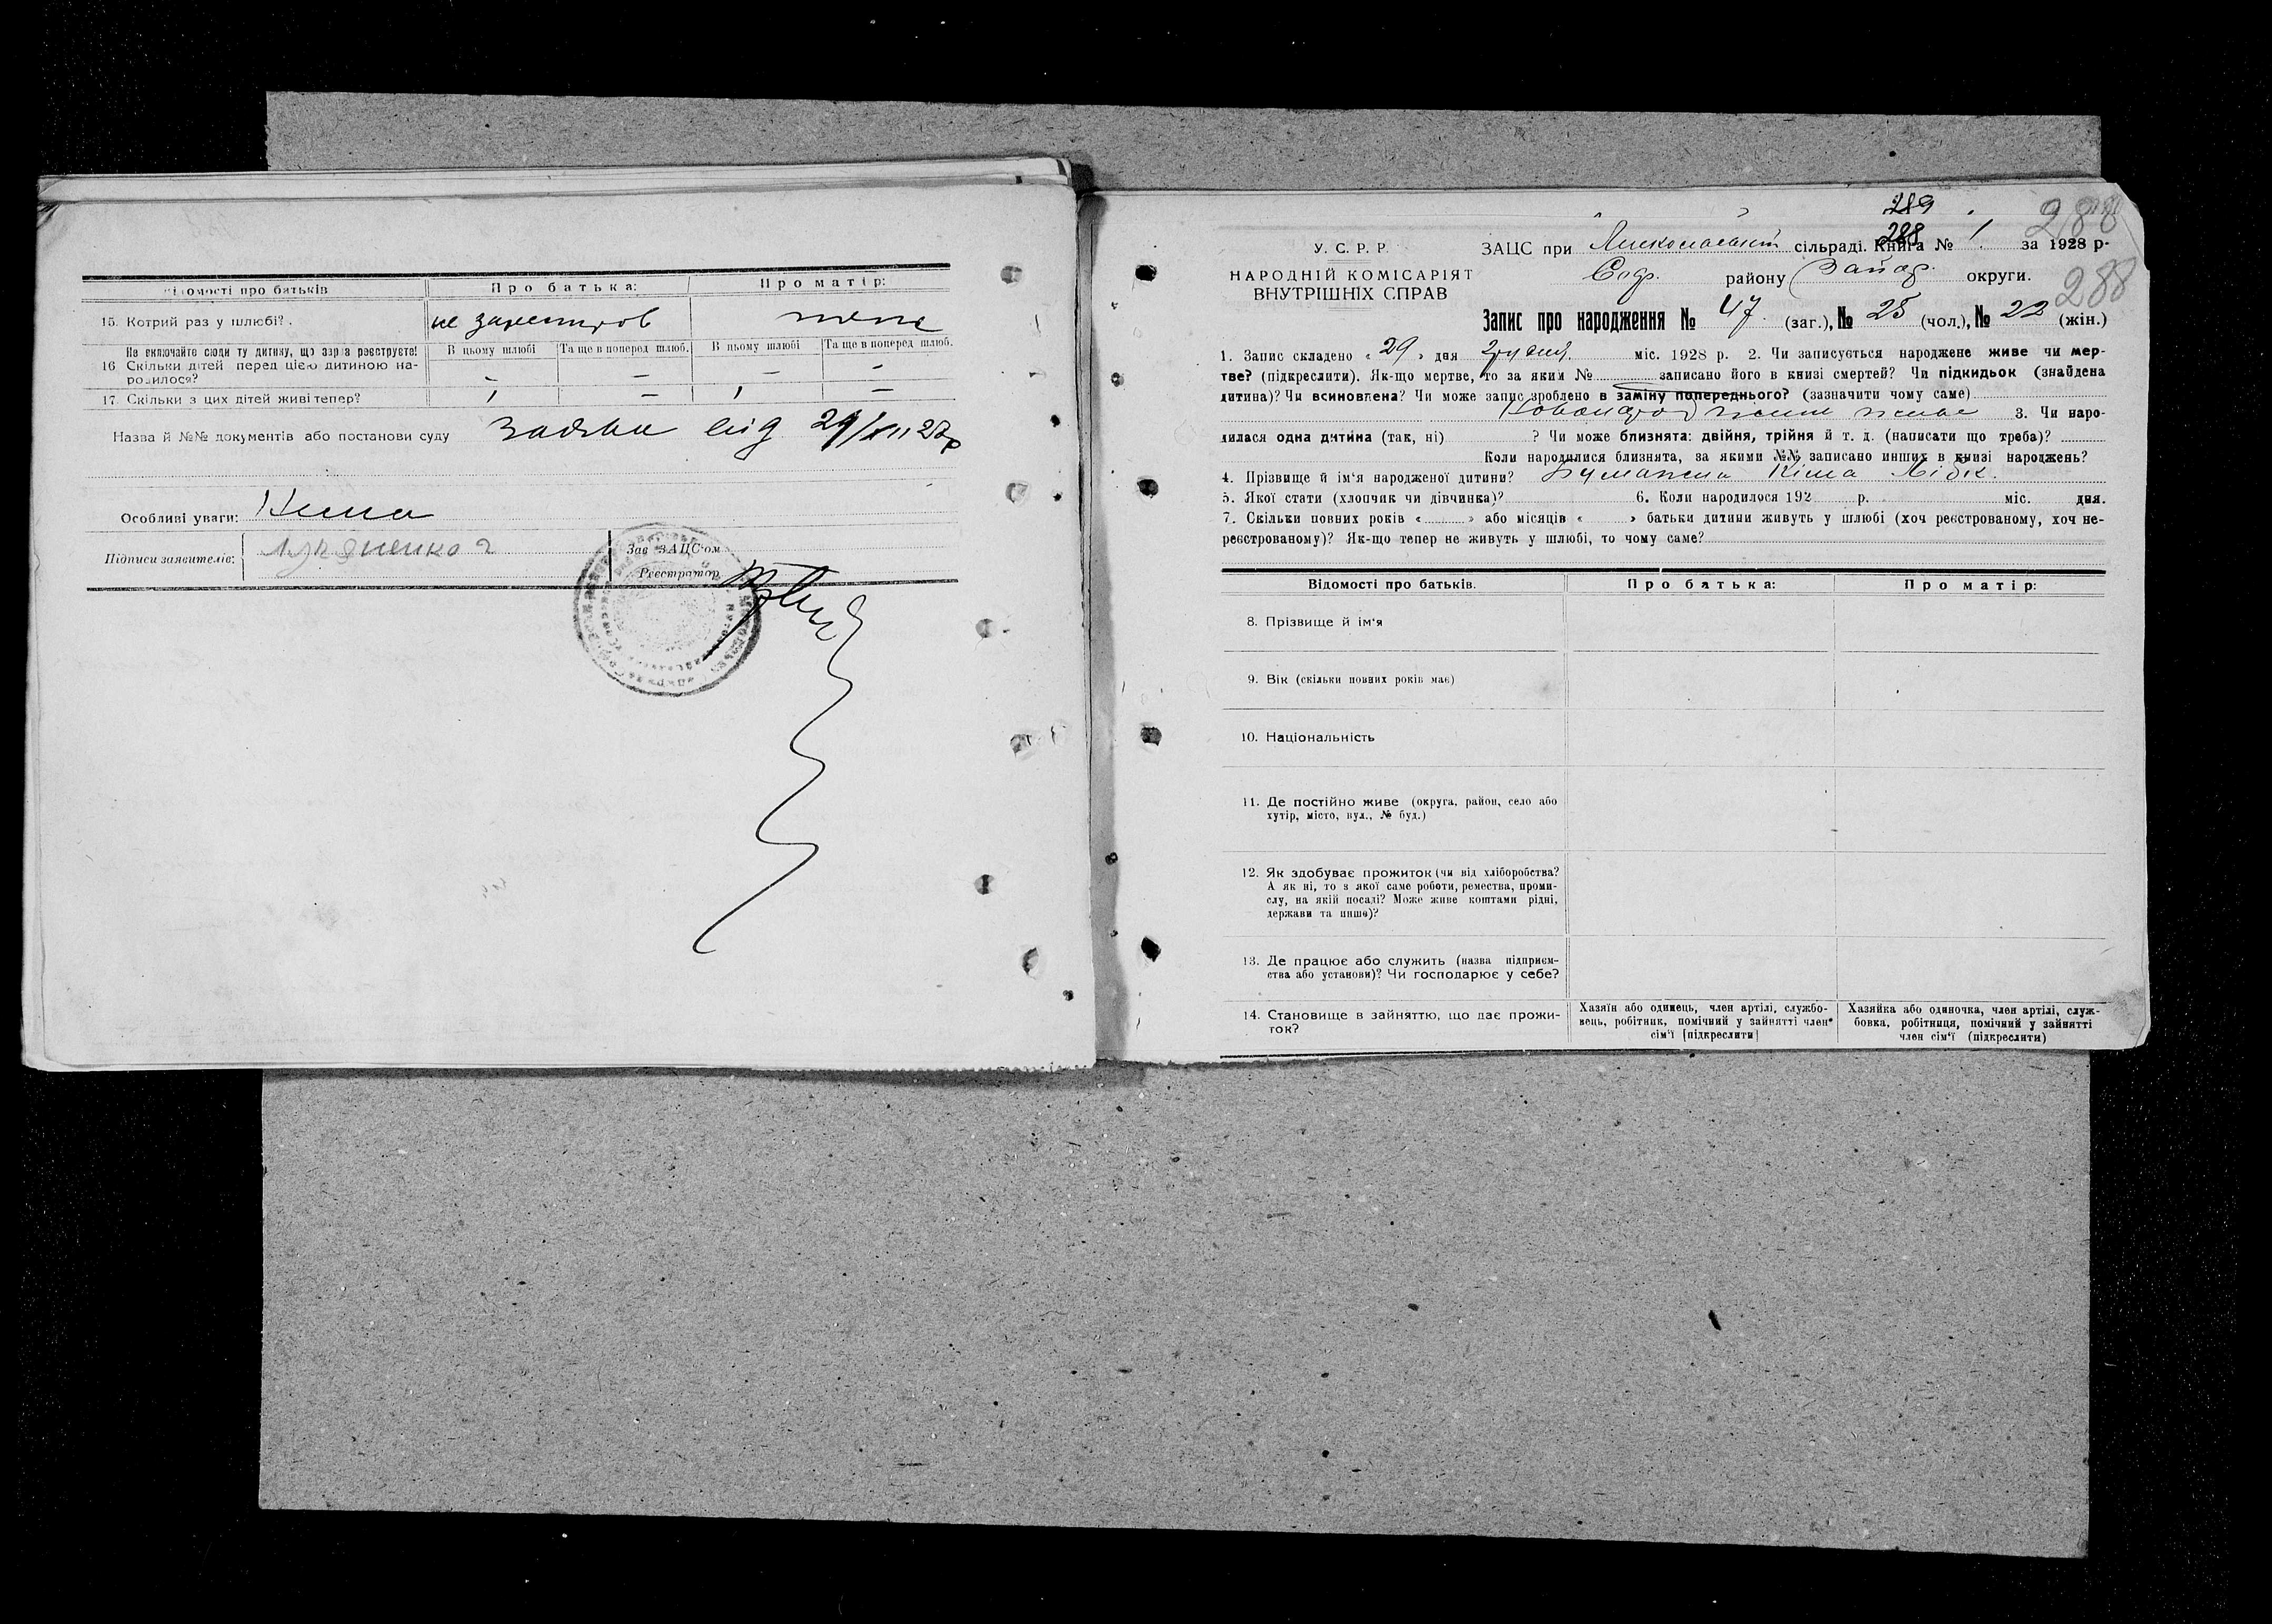 Відомості про батьків
Про батька:
Про матір:
15. Котрий раз у шлюбі?
не зарегистров
теж
Не включайте сюди ту дитину, що зараз реєструєте!
16 Скільки дітей перед цією дитиною народилося?
В цьому шлюбі
Та ще в поперед. шлюб.
В цьому шлюбі
Та ще в поперед. шлюб.
— — — —
17. Скільки з цих дітей живі тепер?
1 — 1 —
Назва й №№ документів або постанови суду
Заява від 29/XII 28 р
Особливі уваги:
Нема
Підписи заявителів:
Зав ЗАЦС'ом
Реєстратор
289
288
288
288
У. С. Р. Р.
НАРОДНІЙ КОМІСАРІЯТ
ВНУТРІШНІХ СПРАВ
ЗАЦС при сільраді. Книга № 1 за 1928 р-
району Запор. округи.
Запис про народження № 47 (заг.), № 25 (чол.), № 22 (жін.)
1. Запис складено « 29 » дня грудня міс. 1928 р. 2. Чи записується народжене живе чи мер-
тве? (підкреслити). Як-що мертве, то за яким № записано його в книзі смертей? Чи підкидьок (знайдена
дитина)? Чи всиновлена? Чи може запис зроблено в заміну попереднього? (зазначити чому саме)
3. Чи наро-
дилася одна дитина (так, ні) ? Чи може близнята: двійня, трійня й т. д. (написати що треба)?
Коли народилися близнята, за якими №№ записано инших в книзі народжень?
4. Прізвище й ім'я народженої дитини?
5. Якої стати (хлопчик чи дівчинка)? 6. Коли народилося 192 р. міс. дня.
7. Скільки повних років « » або місяців « » батьки дитини живуть у шлюбі (хоч реєстрованому, хоч не-
реєстрованому)? Як-що тепер не живуть у шлюбі, то чому саме?
Відомості про батьків.
Про батька:
Про матір:
8. Прізвище й ім'я
9. Вік (скільки повних років має)
10. Національність
11. Де постійно живе (округа, район, село або
хутір, місто, вул., № буд.)
12. Як здобуває прожиток (чи від хліборобства?
А як ні, то з якої саме роботи, ремества, проми-
слу, на якій посаді? Може живе коштами рідні,
держави та инше)?
13. Де працює або служить (назва підприєм-
ства або установи)? Чи господарює у себе?
14. Становище в зайняттю, що дає прожи-
ток?
Хазяїн або одинець, член артілі, службо-
вець, робітник, помічний у зайнятті член
сім'ї [підкреслити]
Хазяйка або одиночка, член артілі, служ-
бовка, робітниця, помічний у зайнятті
член сім'ї (підкреслити)